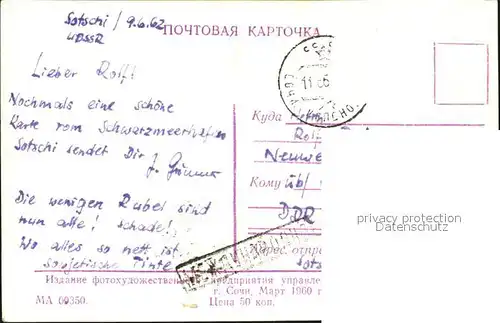 Sotschi / 9.6.62
UDSSR
ПОЧТОВАЯ КАРТОЧКА
Lieber Rolf!
Nochmals eine schöne
Karte vom Schwarzmeerhafen
Sotschi sendet Dir J.
Die wenigen Rubel sind
nun alle! schade!
Wo alles so nett ist.
Sowjetische Tinte
Куда
Rolf
Кому üb/
DDR
privacy protection
Адрес отпр
МЕЖДУНАРОДНОЕ
Издание фотохудожестве предприятия управле
г. Сочи, Март 1960 г
МА 09350.
Цена 50 коп.